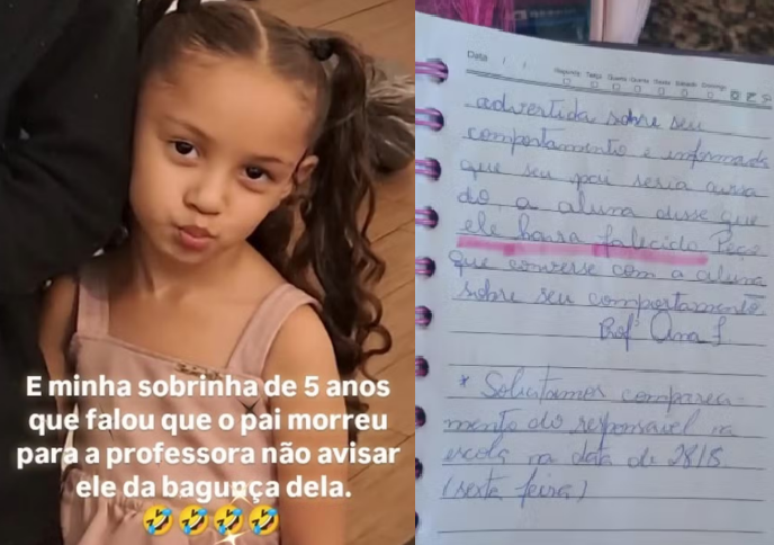 E minha sobrinha de 5 anos
que falou que o pai morreu
para a professora não avisar
ele da bagunça dela.
🤣🤣🤣🤣
Data / /
Segunda Terça Quarta Quinta Sexta Sábado Domingo
advertida sobre seu
comportamento e informada
que seu pai seria avisa
do a aluna disse que
ele havia falecido Peço
que converse com a aluna
sobre seu comportamento
Profª Ana
* Solicitamos compareci-
mento do responsável na
escola na data de 28/8
(sexta feira)